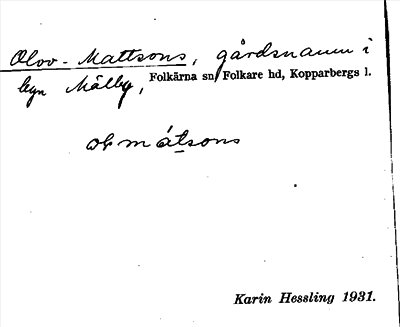 Olov-Mattsons, gårdsnamn i
byn Mälby, Folkärna sn, Folkare hd, Kopparbergs l.
mátsons
Karin Hessling 1931.